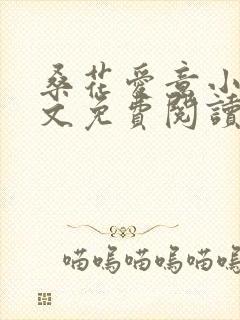 桑花愛意小
文免費閱讀
喵嗚喵嗚喵嗚